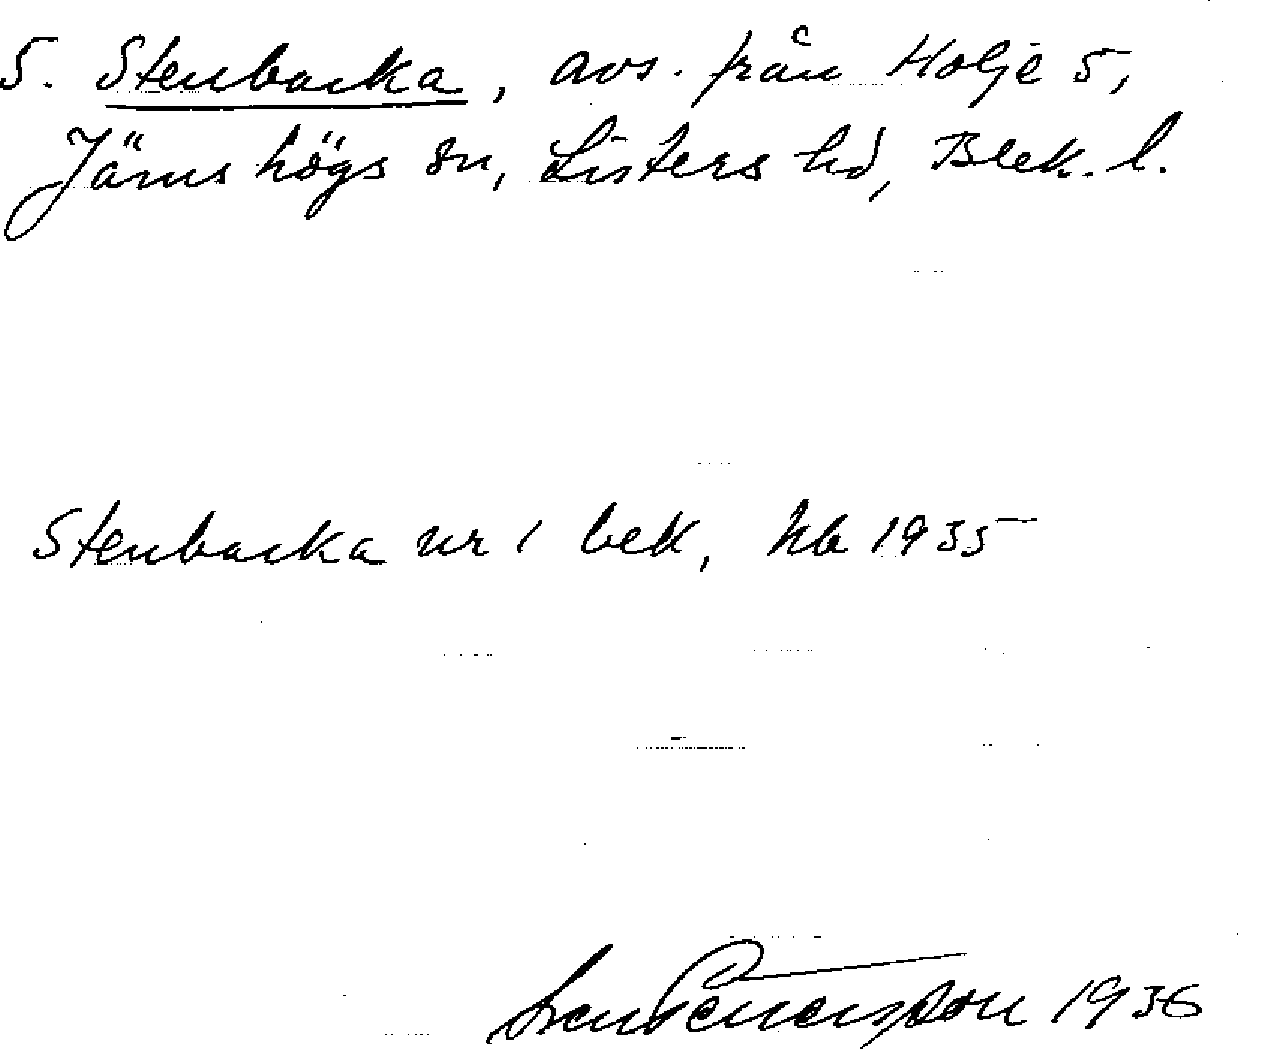 5. Stenbacka, avs. från Holje 5,
Jämshögs sn, Listers hd, Blek. l.
Stenbacka nr 1 bek, hb 1935
1936